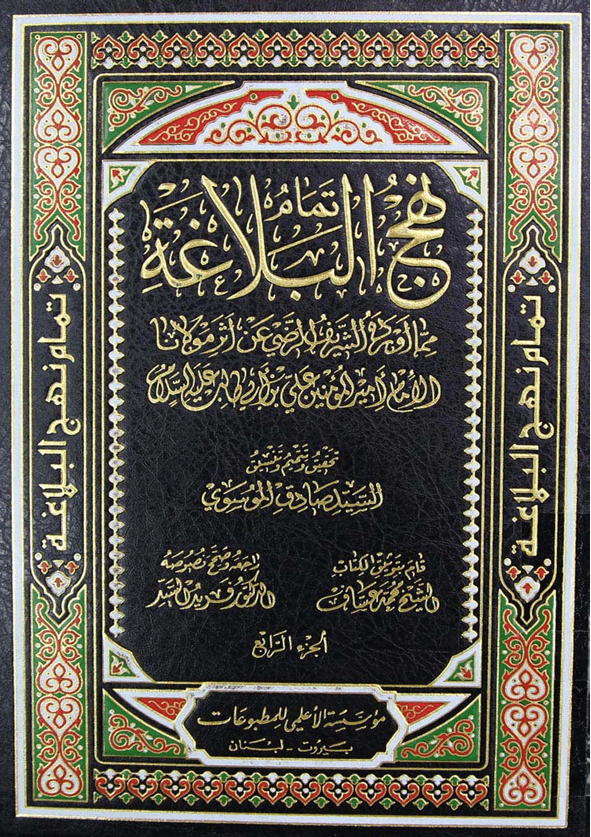 تمام
نهج البلاغة
مما أورده الشريف الرضي عن أثر مولانا
الإمام أمير المؤمنين علي بن أبي طالب عليه السلام
تحقيق وتتميم وتنسيق
السيد صادق الموسوي
قام بتوثيق الكتاب
الشيخ محمد عساف
راجعه وصحح نصوصه
الدكتور فريد السيد
الجزء الرابع
مؤسسة الأعلمي للمطبوعات
بيروت - لبنان
تمام نهج البلاغة
تمام نهج البلاغة